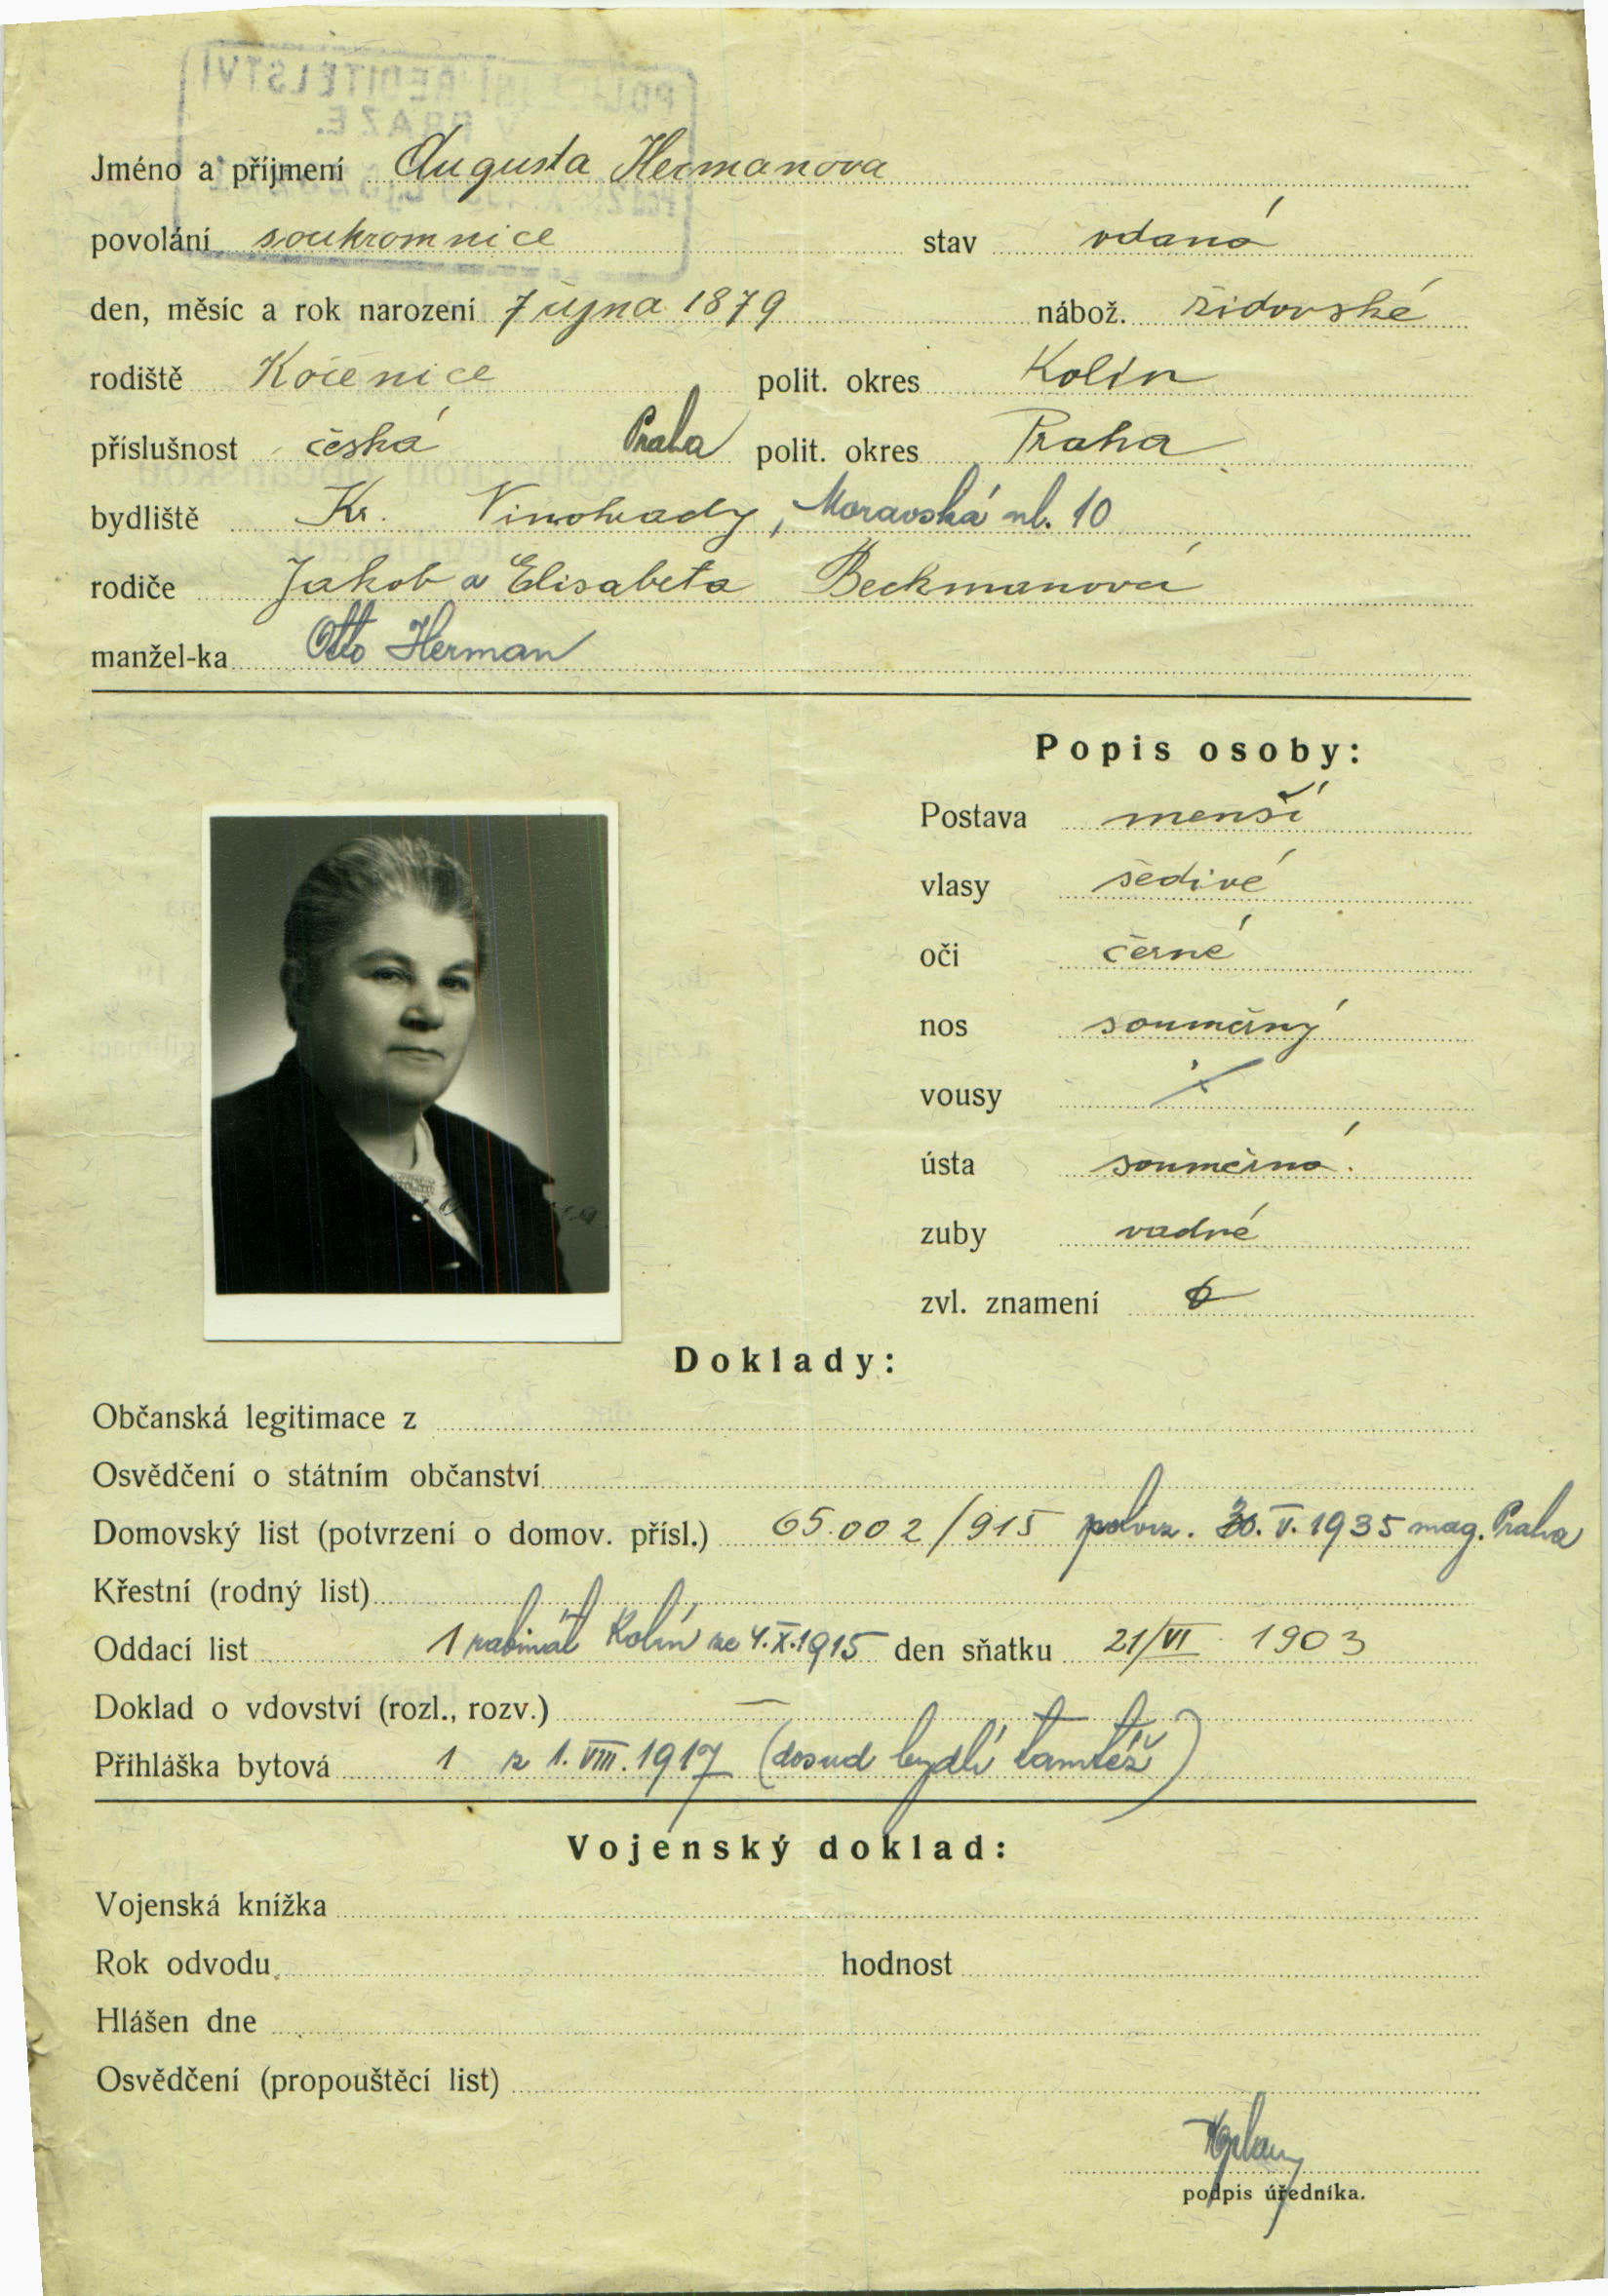 POLICEJNÍ ŘEDITELSTVÍ
V PRAZE.
Jméno a příjmení Augusta Hermanova
povolání soukromnice stav vdaná
den, měsíc a rok narození 7 října 1879 nábož. židovské
rodiště Kořenice polit. okres Kolín
příslušnost česká Praha polit. okres Praha
bydliště Kr. Vinohrady, Moravská ul. 10
rodiče Jakob a Elisabeta Beckmanová
manžel-ka Otto Herman
Popis osoby:
Postava menší
vlasy šedivé
oči černé
nos souměrný
vousy
ústa souměrná.
zuby vadné
zvl. znamení
Doklady:
Občanská legitimace z
Osvědčení o státním občanství
Domovský list (potvrzení o domov. přísl.) 65.002/915 potvrz. 30. V. 1935 mag. Praha
Křestní (rodný list)
Oddací list 1 rabinát Kolín ze 4. X. 1915 den sňatku 21/VI 1903
Doklad o vdovství (rozl., rozv.) —
Přihláška bytová 1 z 1. VIII. 1917 (dosud bydlí tamtéž)
Vojenský doklad:
Vojenská knížka
Rok odvodu hodnost
Hlášen dne
Osvědčení (propouštěcí list)
podpis úředníka.